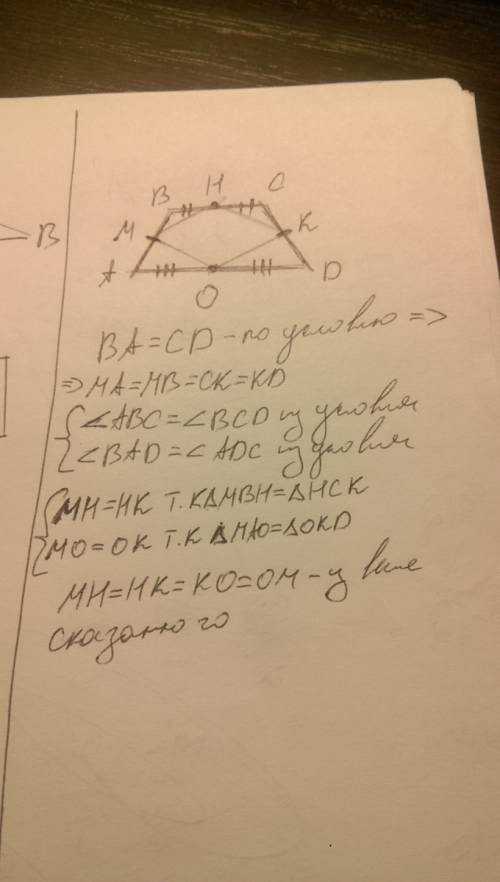 B
B H C
M K
A D
O
BA=CD-по условию =>
=> MA=MB=CK=KD
{∠ABC=∠BCD из условия
{∠BAD=∠ADC из условия
{MH=HK т.к ΔMBH=ΔHCK
{MO=OK т.к ΔMAO=ΔOKD
MH=HK=KO=OM-из выше
сказанного